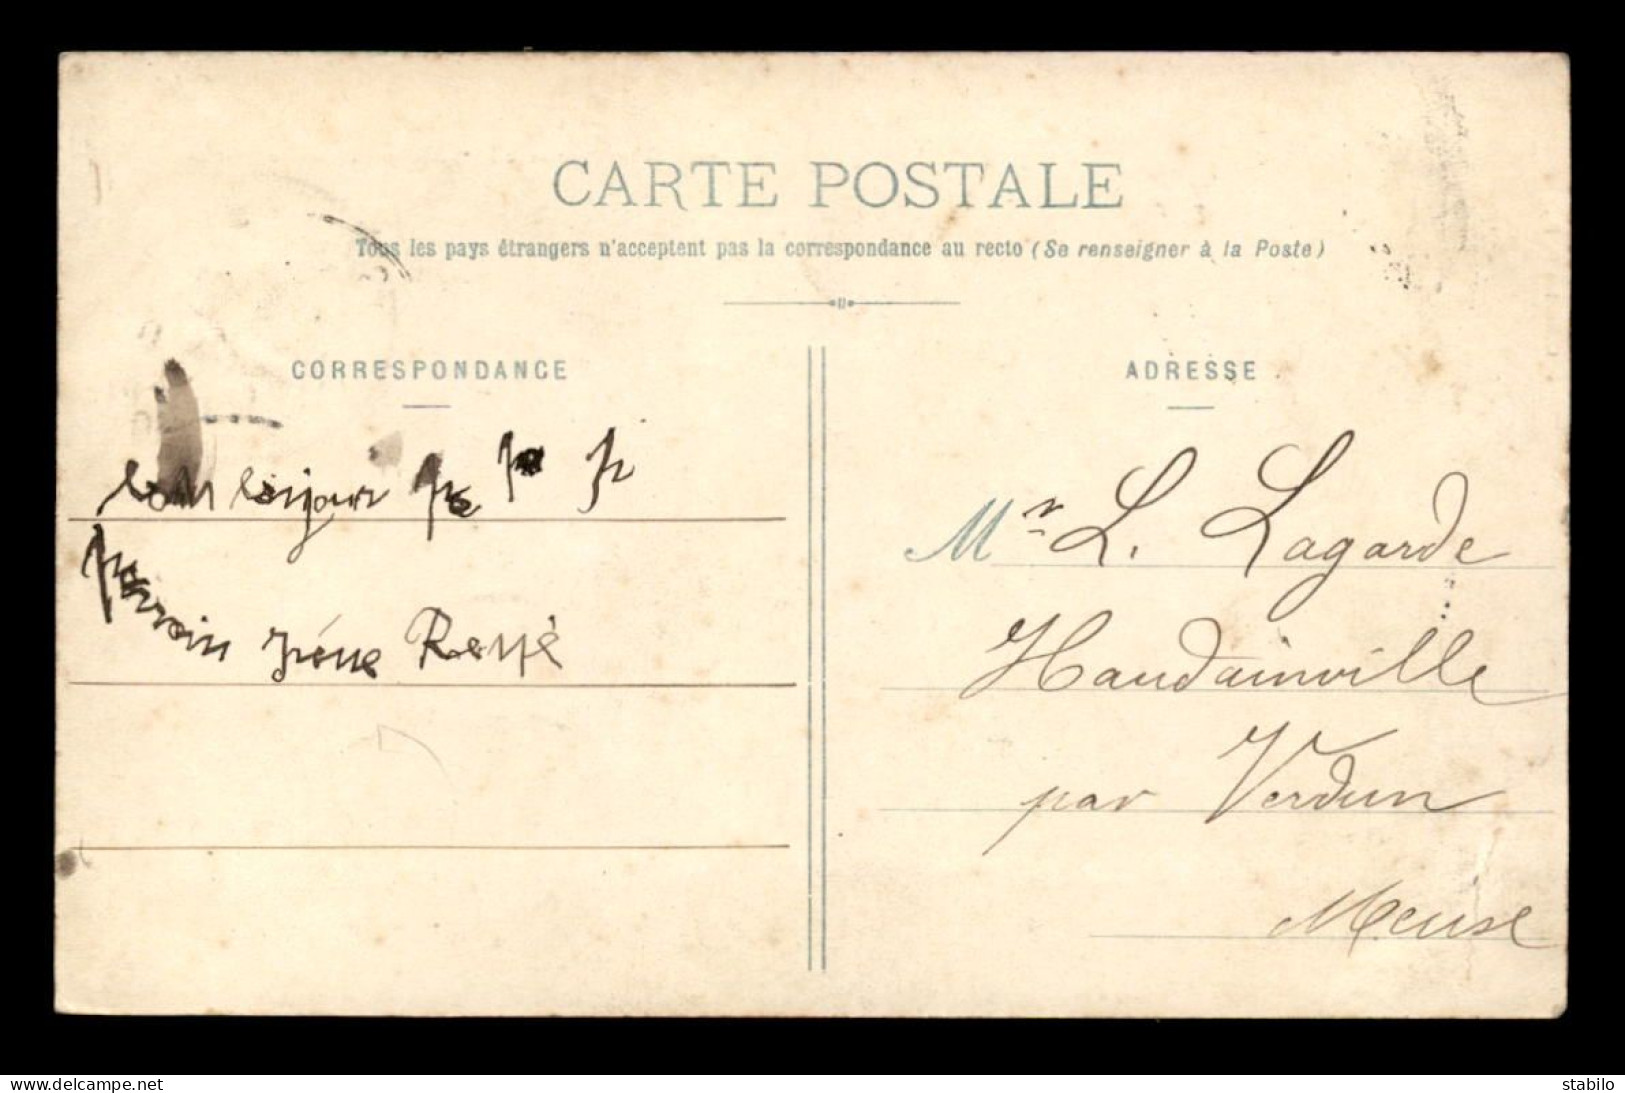 CARTE POSTALE
Tous les pays étrangers n'acceptent pas la correspondance au recto (Se renseigner à la Poste)
CORRESPONDANCE
bonjour
Irène René
ADRESSE
Mr L. Lagarde
Haudainville
par Verdun
Meuse
www.delcampe.net
stabilo